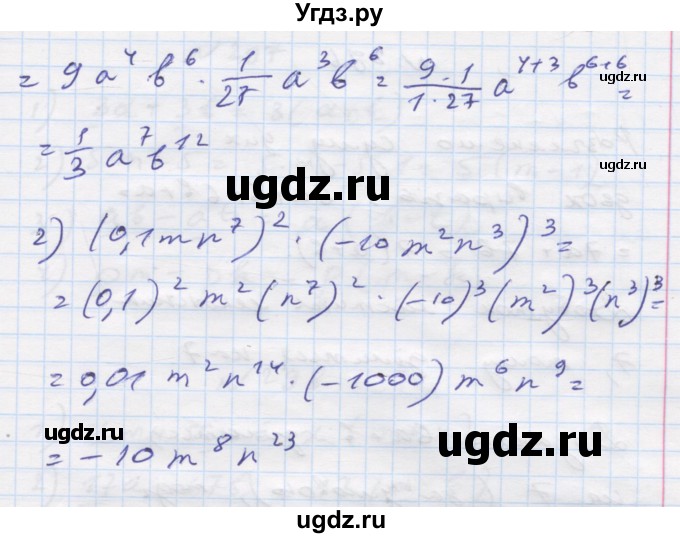 Угдз.ру
= 9a⁴b⁶ · 1/27 a³b⁶ = 9·1/1·27 a⁴⁺³ b⁶⁺⁶ =
ugdz.ru
ugdz.ru
= 1/3 a⁷b¹²
ugdz.ru
ugdz.ru
2) (0,1mn⁷)² · (-10m²n³)³ =
= (0,1)² m² (n⁷)² · (-10)³ (m²)³ (n³)³ =
= 0,01 m²n¹⁴ · (-1000) m⁶n⁹ =
ugdz.ru
ugdz.ru
= -10m⁸n²³
ugdz.ru